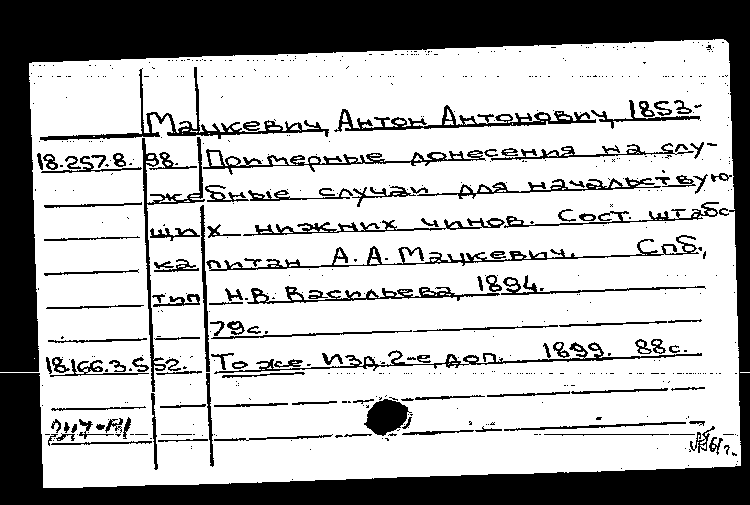 Мацкевич, Антон Антонович, 1853-
18.257.8.98. Примерные донесения на слу-
жебные случаи для начальствую-
щих нижних чинов. Сост. штабс-
капитан А. А. Мацкевич. Спб.,
тип Н.В. Васильева, 1894.
79с.
18.166.3.552. То же. Изд. 2-е, доп. 1899. 88с.